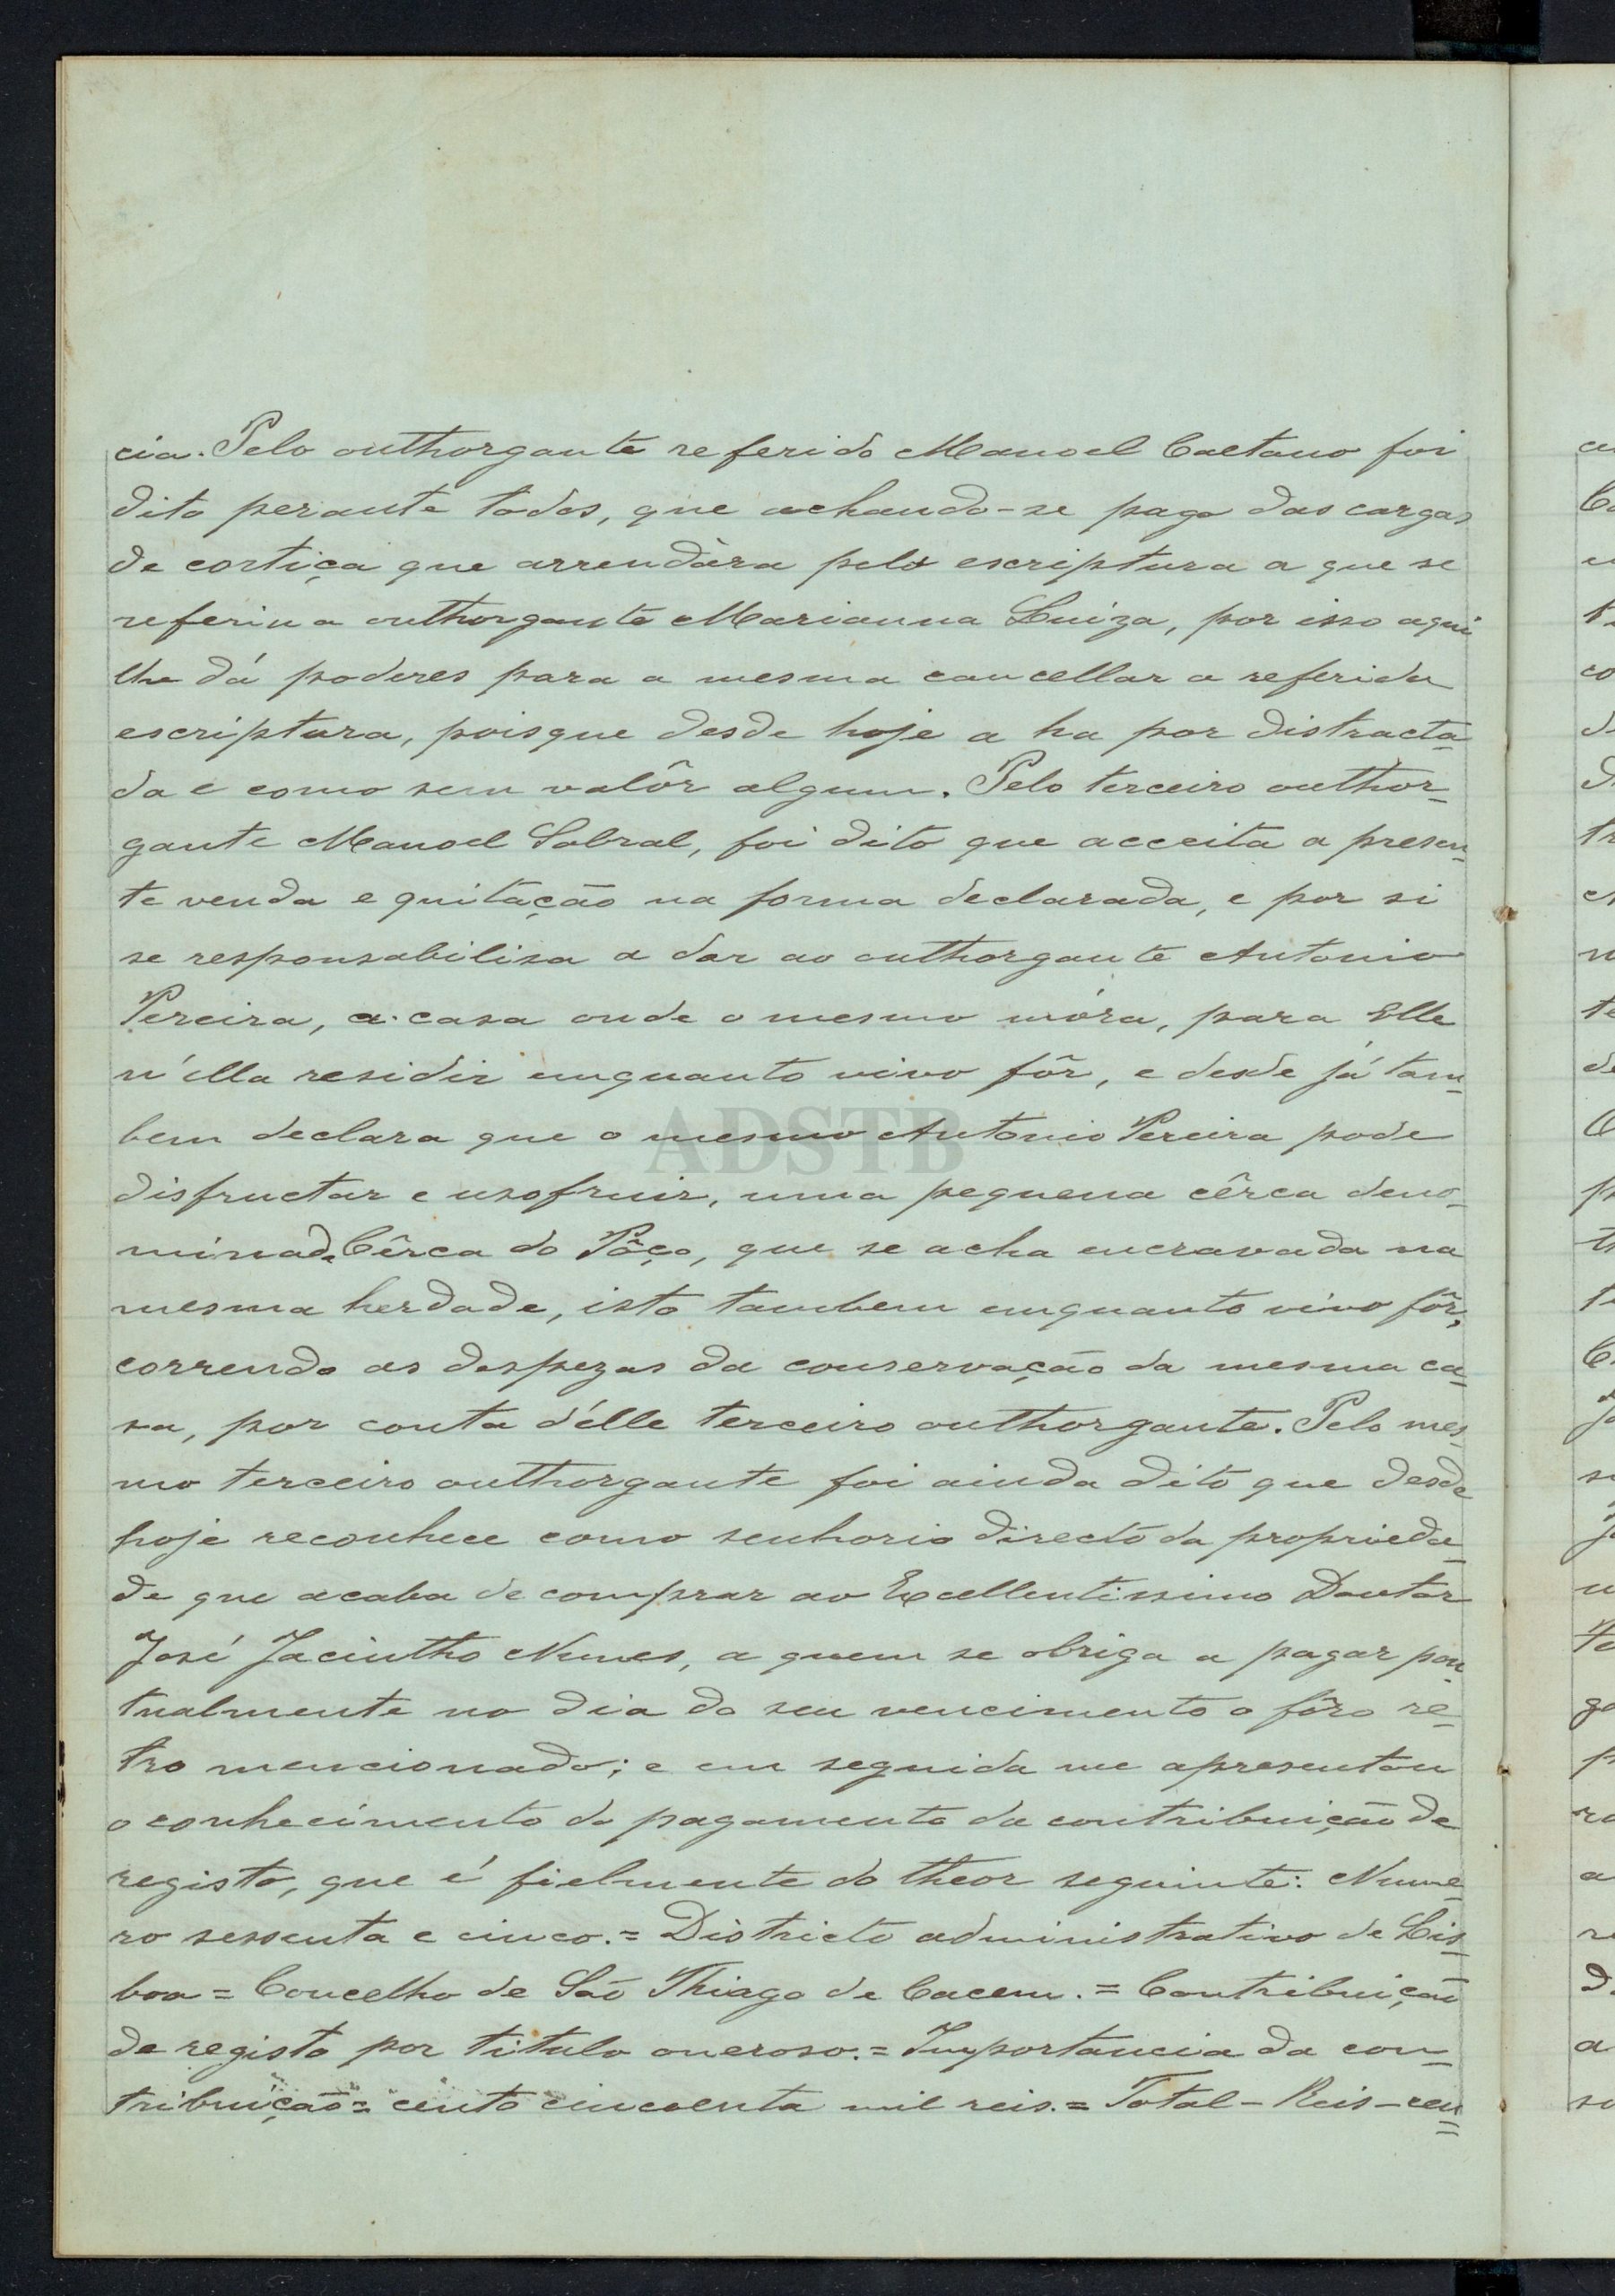 cia. Pelo outhorgante referido Manoel Caetano foi
dito perante todos, que achando-se pago das cargas
de cortiça que arrendàra pela escriptura a que se
referiu a outhorgante Marianna Luiza, por isso aqui
lhe dá poderes para a mesma cancellar a referida
escriptura, poisque desde hoje a ha por distracta-
da e como sem valôr algum. Pelo terceiro outhor-
gante Manoel Sobral, foi dito que acceita a presen-
te venda e quitação na forma declarada, e por si
se responsabilisa a dar ao outhorgante Antonio
Pereira, a casa onde o mesmo móra, para Elle
n'ella residir emquanto vivo fôr, e desde já tam-
bem declara que o mesmo Antonio Pereira pode
disfructar e usofruir, uma pequena cêrca deno-
minada Cêrca do Pôço, que se acha encravada na
mesma herdade, isto tambem emquanto vivo fôr,
correndo as despezas da conservação da mesma ca-
sa, por conta d'élle terceiro outhorgante. Pelo mes-
mo terceiro outhorgante foi ainda dito que desde
hoje reconhece como senhorio directo da proprieda-
de que acaba de comprar ao Excellentissimo Doutor
José Jacintho Nunes, a quem se obriga a pagar pon-
tualmente no dia do seu vencimento o fôro re-
tro mencionado; e em seguida me apresentou
o conhecimento do pagamento da contribuição de
registo, que é fielmente do theor seguinte: Nume-
ro sessenta e cinco.= Districto administrativo de Lis-
boa = Concelho de São Thiago de Cacem.= Contribuição
de registo por titulo oneroso.= Importancia da con-
tribuição= cento cincoenta mil reis.= Total - Reis - cen=
ADSTB